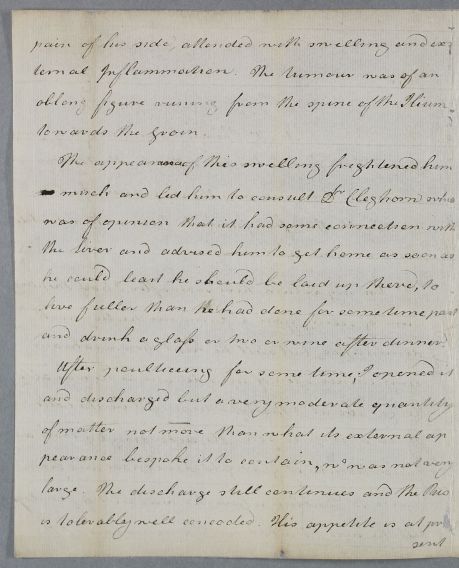 pain of his side, attended with swelling and ex-
ternal Inflammation. The tumour was of an
oblong figure runing from the spine of the Ilium
towards the groin.
The appearance of this swelling frightened him
much and led him to consult Dr Cleghorn who
was of opinion that it had some connection with
the liver and advised him to get home as soon as
he could least he should be laid up there, to
live fuller than he had done for some time past
and drink a glass or two or wine after dinner.
After poulticeing for some time, I opened it
and discharged but a very moderate quantity
of matter not more than what its external ap
pearance bespoke it to contain, wh was not very
large. The discharge still continues and the Pus
is tolerably well concocted. His appetite is at pre
sent